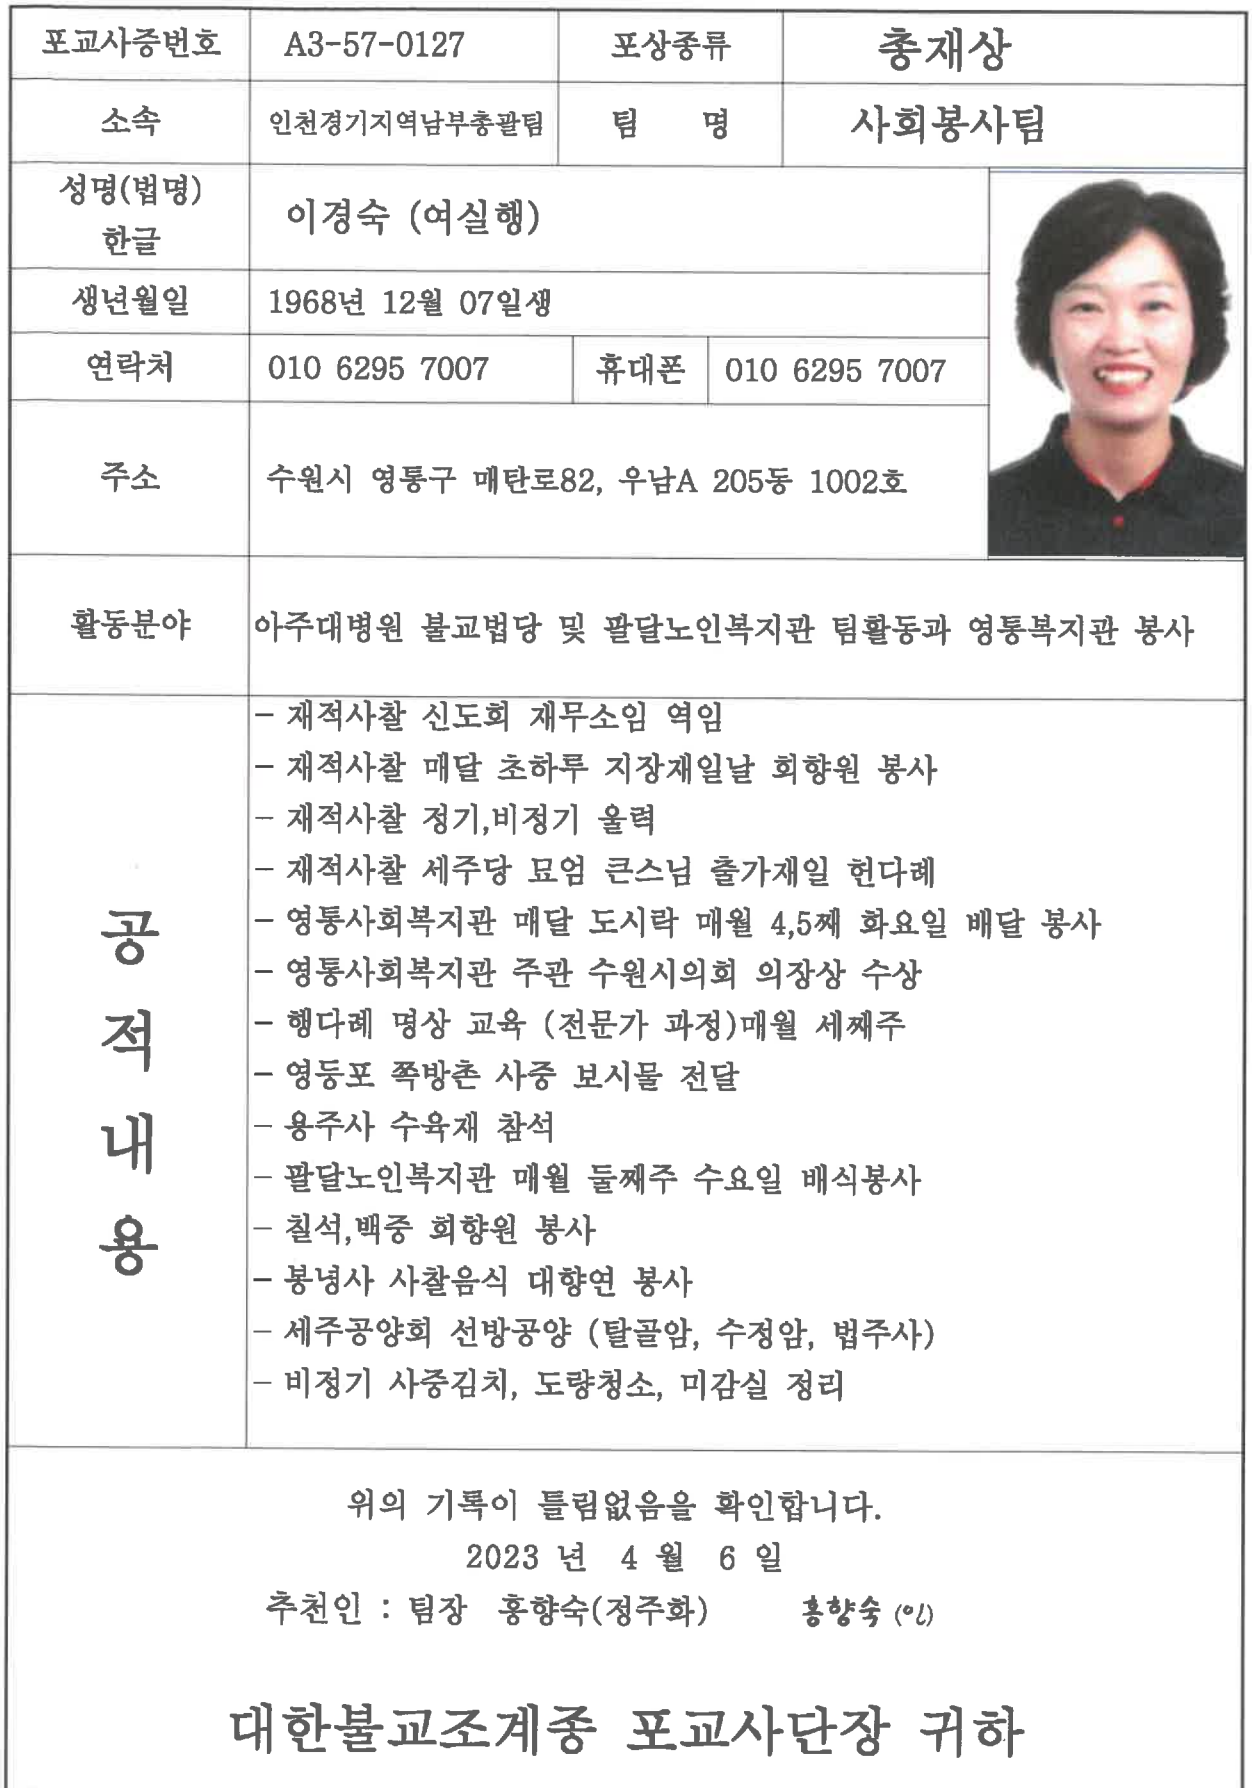 포교사증번호 A3-57-0127 포상종류 총재상
소속 인천경기지역남부총괄팀 팀 명 사회봉사팀
성명(법명)
한글
이경숙 (여실행)
생년월일 1968년 12월 07일생
연락처 010 6295 7007 휴대폰 010 6295 7007
주소 수원시 영통구 매탄로82, 우남A 205동 1002호
활동분야 아주대병원 불교법당 및 팔달노인복지관 팀활동과 영통복지관 봉사
공적내용
- 재적사찰 신도회 재무소임 역임
- 재적사찰 매달 초하루 지장재일날 회향원 봉사
- 재적사찰 정기,비정기 울력
- 재적사찰 세주당 묘엄 큰스님 출가재일 헌다례
- 영통사회복지관 매달 도시락 매월 4,5째 화요일 배달 봉사
- 영통사회복지관 주관 수원시의회 의장상 수상
- 행다례 명상 교육 (전문가 과정)매월 세째주
- 영등포 쪽방촌 사중 보시물 전달
- 용주사 수육재 참석
- 팔달노인복지관 매월 둘째주 수요일 배식봉사
- 칠석,백중 회향원 봉사
- 봉녕사 사찰음식 대향연 봉사
- 세주공양회 선방공양 (탈골암, 수정암, 법주사)
- 비정기 사중김치, 도량청소, 미감실 정리
위의 기록이 틀림없음을 확인합니다.
2023 년 4 월 6 일
추천인 : 팀장 홍향숙(정주화) 홍향숙 (인)
대한불교조계종 포교사단장 귀하